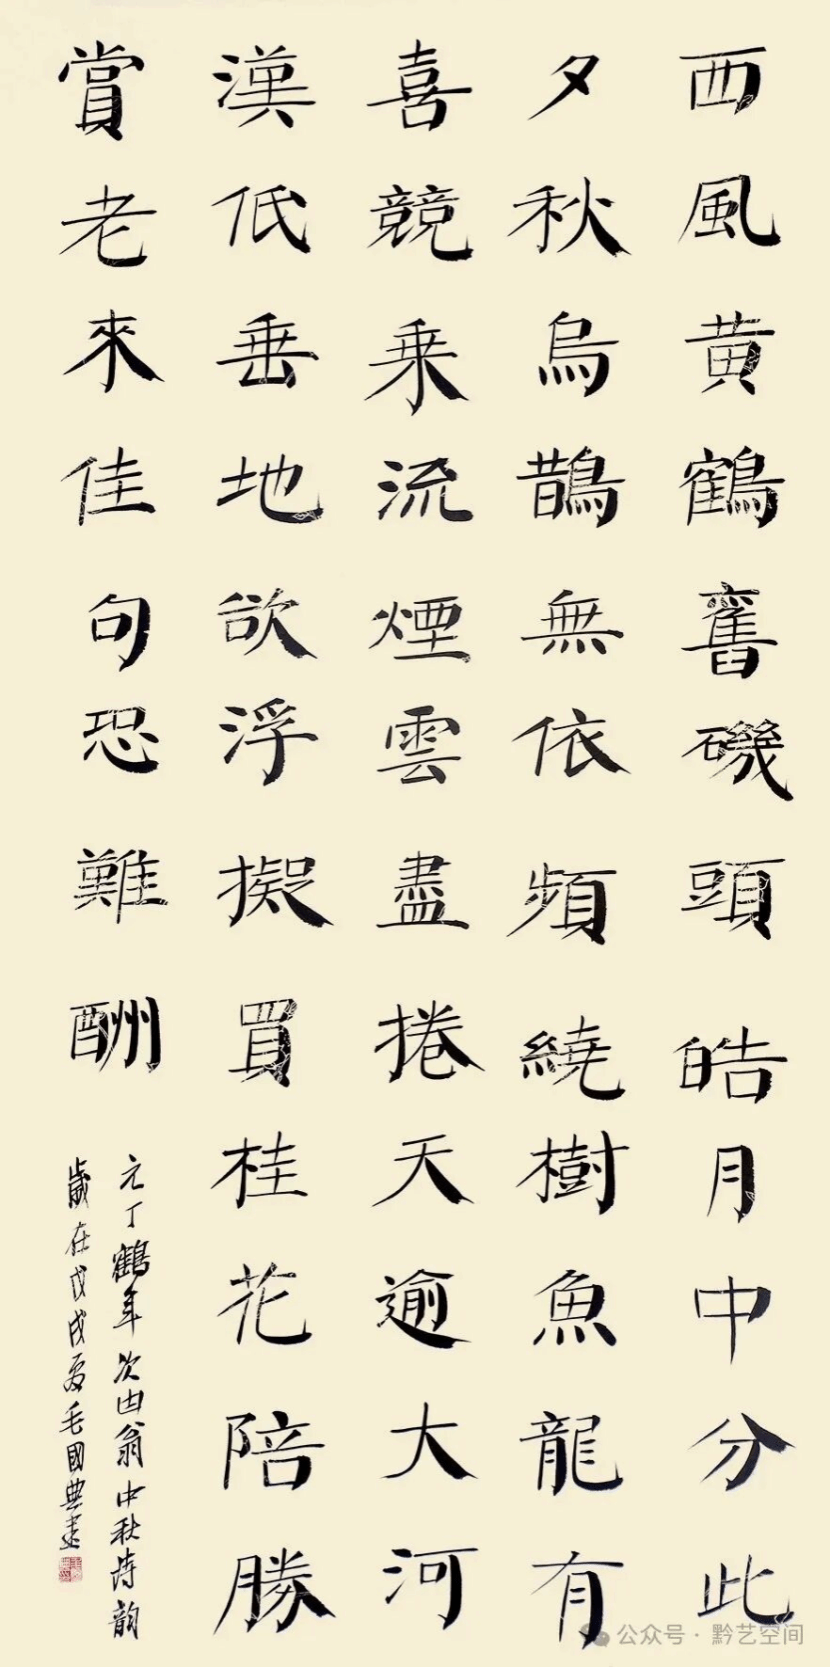 西風黄鶴舊磯頭皓月中分此
夕秋烏鵲無依頻繞樹魚龍有
喜競乘流煙雲盡捲天逾大河
漢低垂地欲浮擬買桂花陪勝
賞老來佳句恐難酬
元丁鶴年次由翁中秋詩韵
歲在戊戌夏毛國典書
公众号·黔艺空间